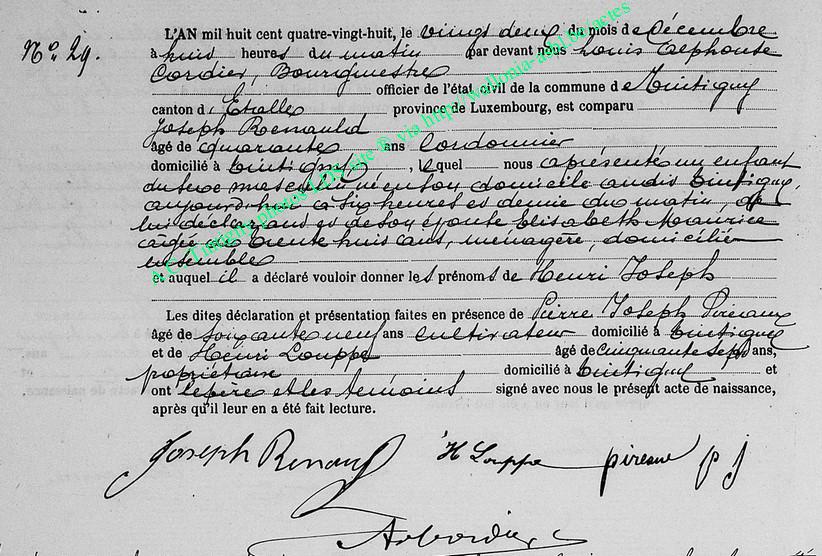 N° 29.
L'AN mil huit cent quatre-vingt-huit, le vingt deux du mois de Décembre
à huit heures du matin par devant nous Louis Alphonse
Cordier, Bourgmestre
officier de l'état civil de la commune de Tintigny
canton d'Etalle province de Luxembourg, est comparu
Joseph Renauld
âgé de quarante ans Cordonnier
domicilié à tintigny, lequel nous a présenté un enfant
du sexe masculin né en son domicile audit tintigny,
aujourd'hui à six heures et demie du matin, de
lui déclarant et de son épouse Elisabeth Maurice
agée de trente huit ans, ménagère, domiciliés
ensemble
et auquel il a déclaré vouloir donner les prénoms de Henri Joseph
Les dites déclaration et présentation faites en présence de Pierre Joseph Pireaux
âgé de soixante neuf ans cultivateur domicilié à tintigny
et de Henri Louppe âgé de cinquante sept ans,
propriétaire domicilié à tintigny et
ont le père et les témoins signé avec nous le présent acte de naissance,
après qu'il leur en a été fait lecture.
Joseph Renauld H Louppe pireau p j
A Cordier
A.C. Tintigny photos LDS site © via http://wallonia-asbl.be/actes